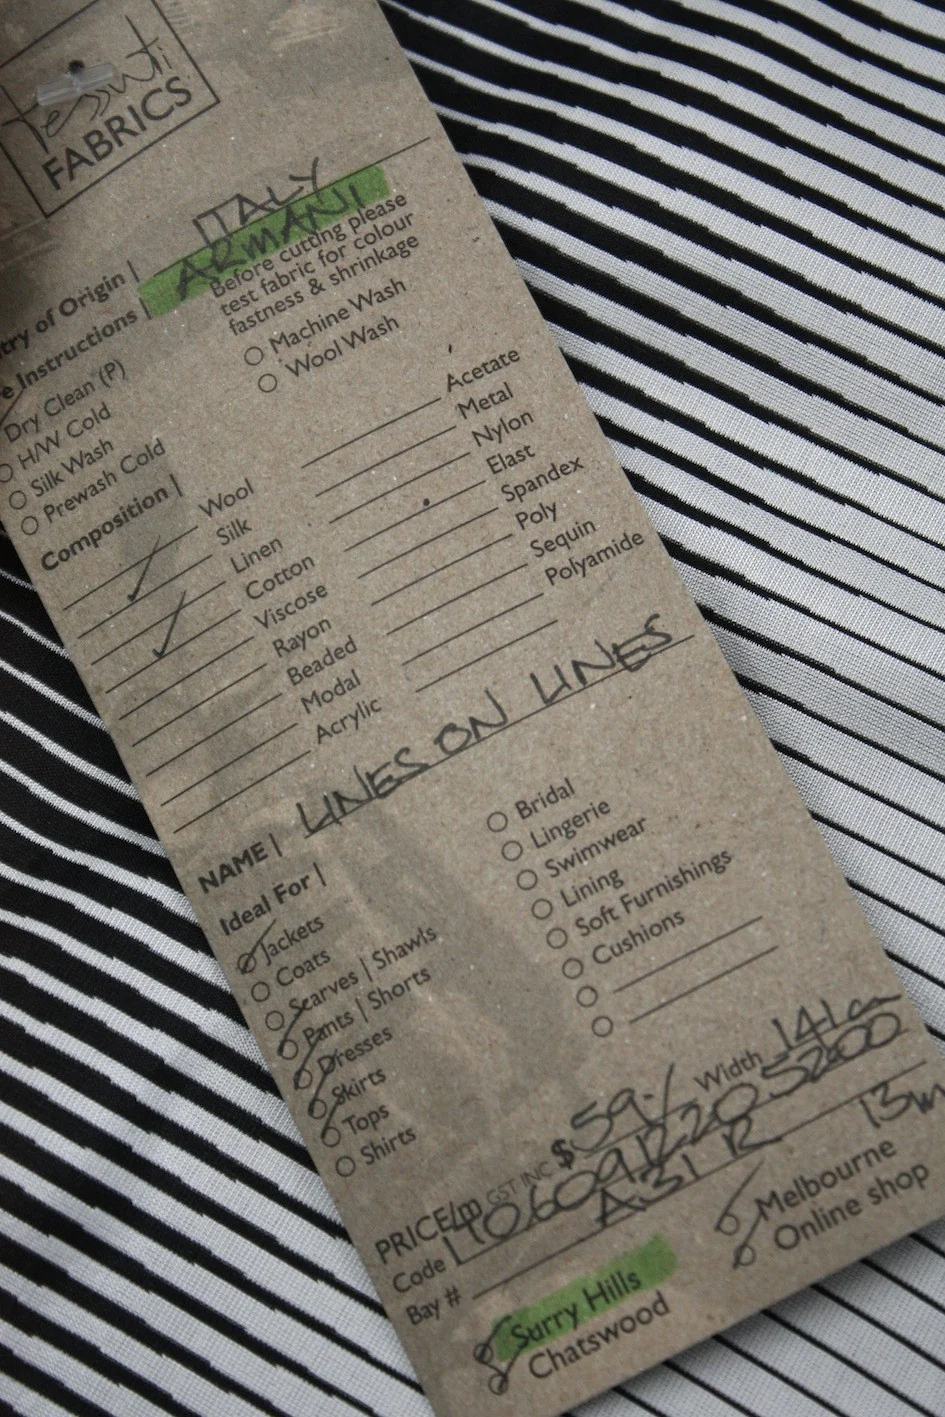 Tessuti
FABRICS
ITALY
try of Origin | ARMANI
e Instructions | Before cutting please
test fabric for colour
fastness & shrinkage
Dry Clean (P)
H/W Cold
Silk Wash
Prewash Cold
Machine Wash
Wool Wash
Composition |
Wool
Silk
Linen
Cotton
Viscose
Rayon
Beaded
Modal
Acrylic
Acetate
Metal
Nylon
Elast
Spandex
Poly
Sequin
Polyamide
NAME | LINES ON LINES
Ideal For |
Jackets
Coats
Scarves | Shawls
Pants | Shorts
Dresses
Skirts
Tops
Shirts
Bridal
Lingerie
Swimwear
Lining
Soft Furnishings
Cushions
PRICE/m GST INC $59./ Width 141cm
Code
Bay # A31 R 13m
Surry Hills
Chatswood
Melbourne
Online shop